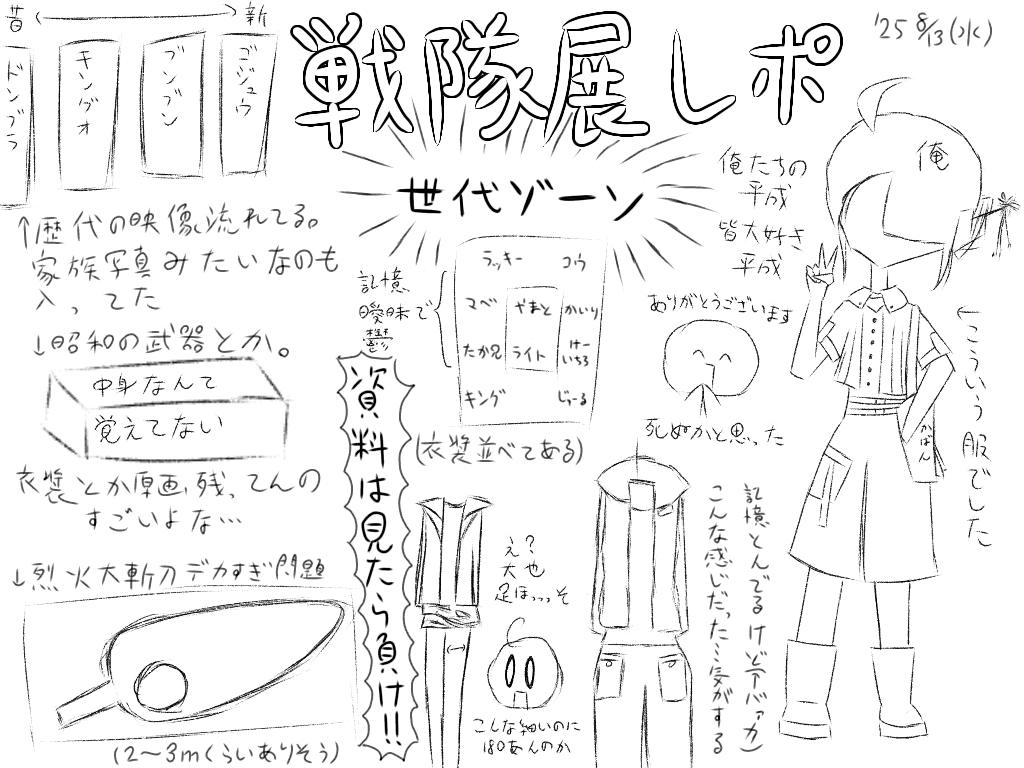 戦隊展レポ
'25 8/13(水)
昔 ←→ 新
ドンブラ
キングオ
ブンブン
ゴジュウ
↑歴代の映像流れてる。
家族写真みたいなのも
入ってた
↓昭和の武器とか。
中身なんて
覚えてない
衣装とか原画残ってんの
すごいよな…
↓烈火大斬刀デカすぎ問題
(2〜3mくらいありそう)
世代ゾーン
記憶
曖昧で
鬱
ラッキー コウ
マベ やまと かいり
たか兄 ライト けーいちろ
キング じゅーる
(衣装並べてある)
資料は見たら負け!!
え?
大也
足ほっっっそ
こんな細いのに
180あんのか
俺たちの
平成
皆大好き
平成
ありがとうございます
死ぬかと思った
記憶とんでるけど(アバァカ)
こんな感じだった…気がする
俺
←こういう服でした
かばん